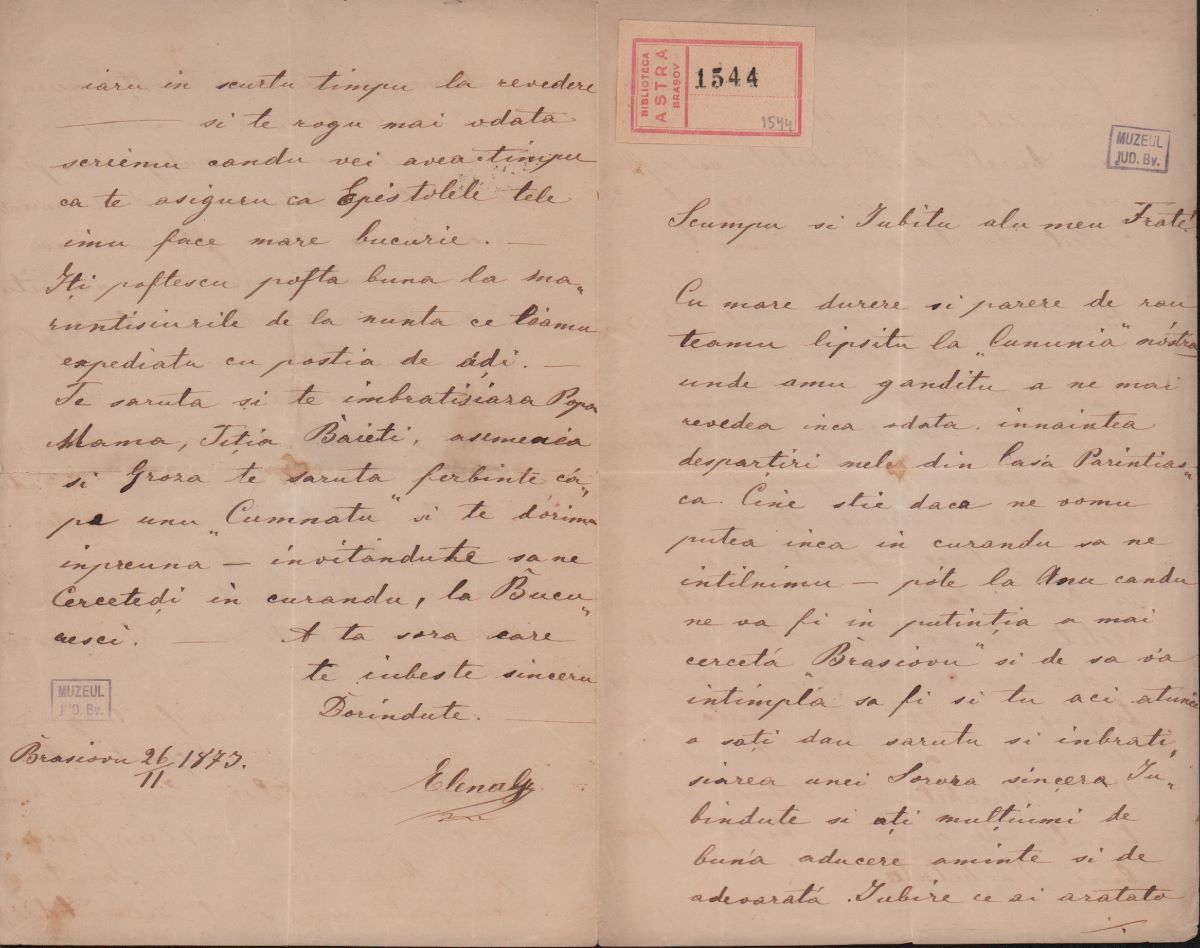 BIBLIOTECA
ASTRA
BRAȘOV
1544
1544
MUZEUL
JUD. Bv.
Scumpu si Iubitu alu meu Frate!
Cu mare durere si parere de rau
teamu lipsitu la „Cununia" nóstra
unde amu ganditu a ne mai
revedea inca odata, innaintea
despartiri mele din Casa Parintias„
ca. Cine stie daca ne vomu
putea inca in curandu sa ne
intilnimu — póte la Anu candu
ne va fi in putintia a mai
cercetá „Brasiovu" si de sa va
intimpla sa fi si tu aci atunci
o sați dau sarutu si inbrati„
siarea unei Sorora sincera Iu„
bindute si ați mulțiumi de
buna aducere aminte si de
adevarată Iubire ce ai aratato
iaru in scurtu timpu la revedere
— si te rogu mai odata
scriemu candu vei avea timpu
ca te asiguru ca Epistolele tele
imu face mare bucurie. —
Iți poftescu pofta buna la ma„
runtisiurile de la nunta ce
expediatu cu postia de adi. —
Te saruta și te imbratisiara Papa
Mama, Tiția Baieti, asemenea
si Groza te saruta ferbinte cá„
pe unu „Cumnatu" si te dorimu
inpreuna — invitandute sa ne
Cercetedi in curandu, la Bucu„
resci. — A ta sora care
te iubeste sinceru
Dorindute. —
Elena
Brasiovu 26/II 1873.
MUZEUL
JUD. Bv.